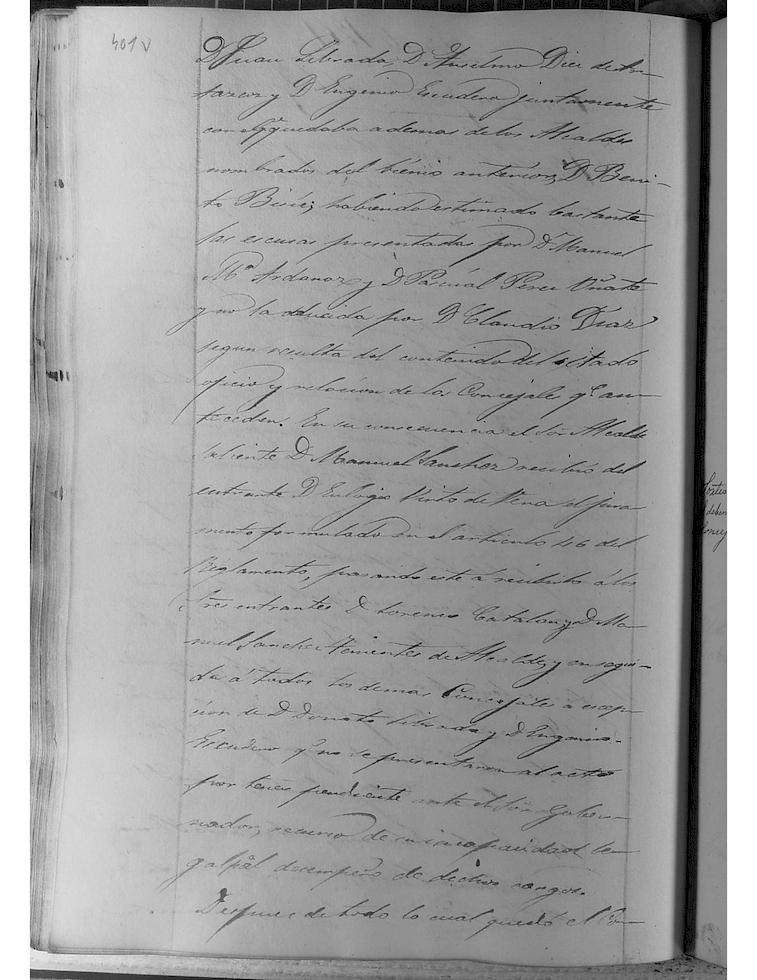 401 v
D Juan Librada, D Anselmo Diez de Ar-
tazcoz y D Eugenio Escudero juntamente
con el q.e quedaba ademas de los Alcaldes
nombrados del bienio anterior, D Beni-
to Bisié; habiendo estimado bastante
las escusas presentadas por D Manuel
M.a Ardanaz y D Pascual Perez Oñate
y no la aducida por D Claudio Diaz
segun resulta del contenido del citado
oficio y relacion de los Concejale q.e an-
teceden. En su consecuencia el Sor Alcalde
saliente D Manuel Sanchez recibió del
entrante D Eulogio Pinto de Vera el jura-
mento formulado en el articulo 46 del
Reglamento, pasando este á recibirlo á los
Sres entrantes D Lorenzo Catalan y D Ma-
nuel Sanchez Tenientes de Alcalde y en segui-
da á todos los demas Concejales a escep-
cion de D Donato Librada y D Eugenio
Escudero q.e no se presentaron al acto
por tener pendiente ante el Sor Gober-
nador, recurso de incapacidad le-
gal p.a el desempeño de dichos cargos.
Despues de todo lo cual quedó el